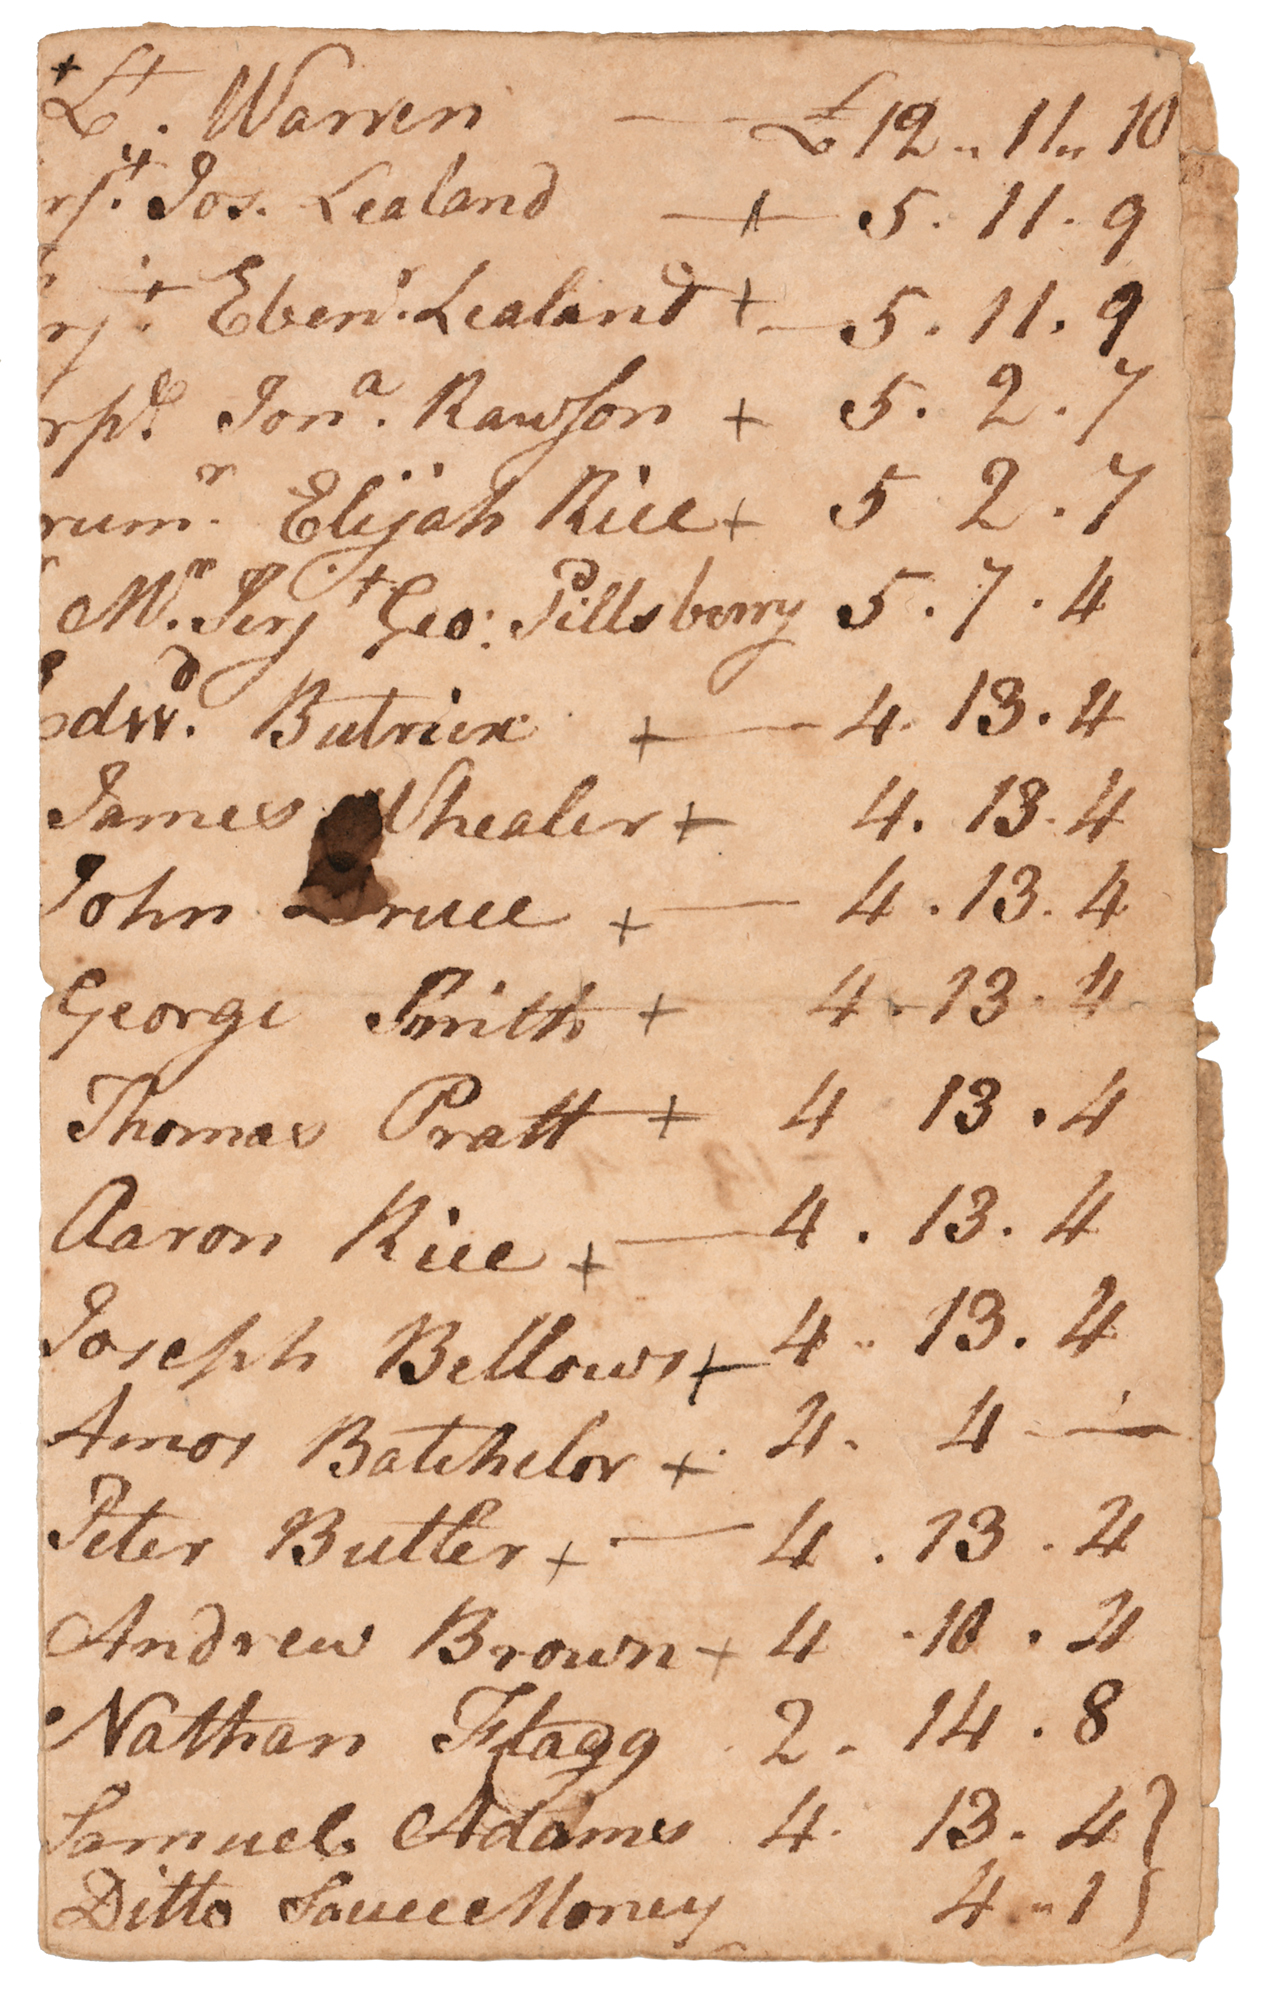 + Lt. Warren — £12 " 11 " 10
rjt. Jos. Lealand — + 5. 11. 9
rjt. Ebenr. Lealand + — 5. 11. 9
rpl. Jona. Rawson + 5. 2. 7
rumr. Elijah Rice + 5 2. 7
Mr. Serjt Geo: Pillsberry 5. 7. 4
Edwd. Butrick + — 4. 13. 4
James Whealer + 4. 13. 4
John Druce + — 4. 13. 4
George Smith + 4. 13. 4
Thomas Pratt + 4 13. 4
Aaron Rice + — 4. 13. 4
Joseph Bellows + 4. 13. 4
Amos Batchelor + 4. 4 —
Peter Butler + — 4. 13. 4
Andrew Brown + 4. 10. 4
Nathan Flagg 2. 14. 8
Samuel Adams 4. 13. 4 }
Ditto Sauce Money 4 " 1 }